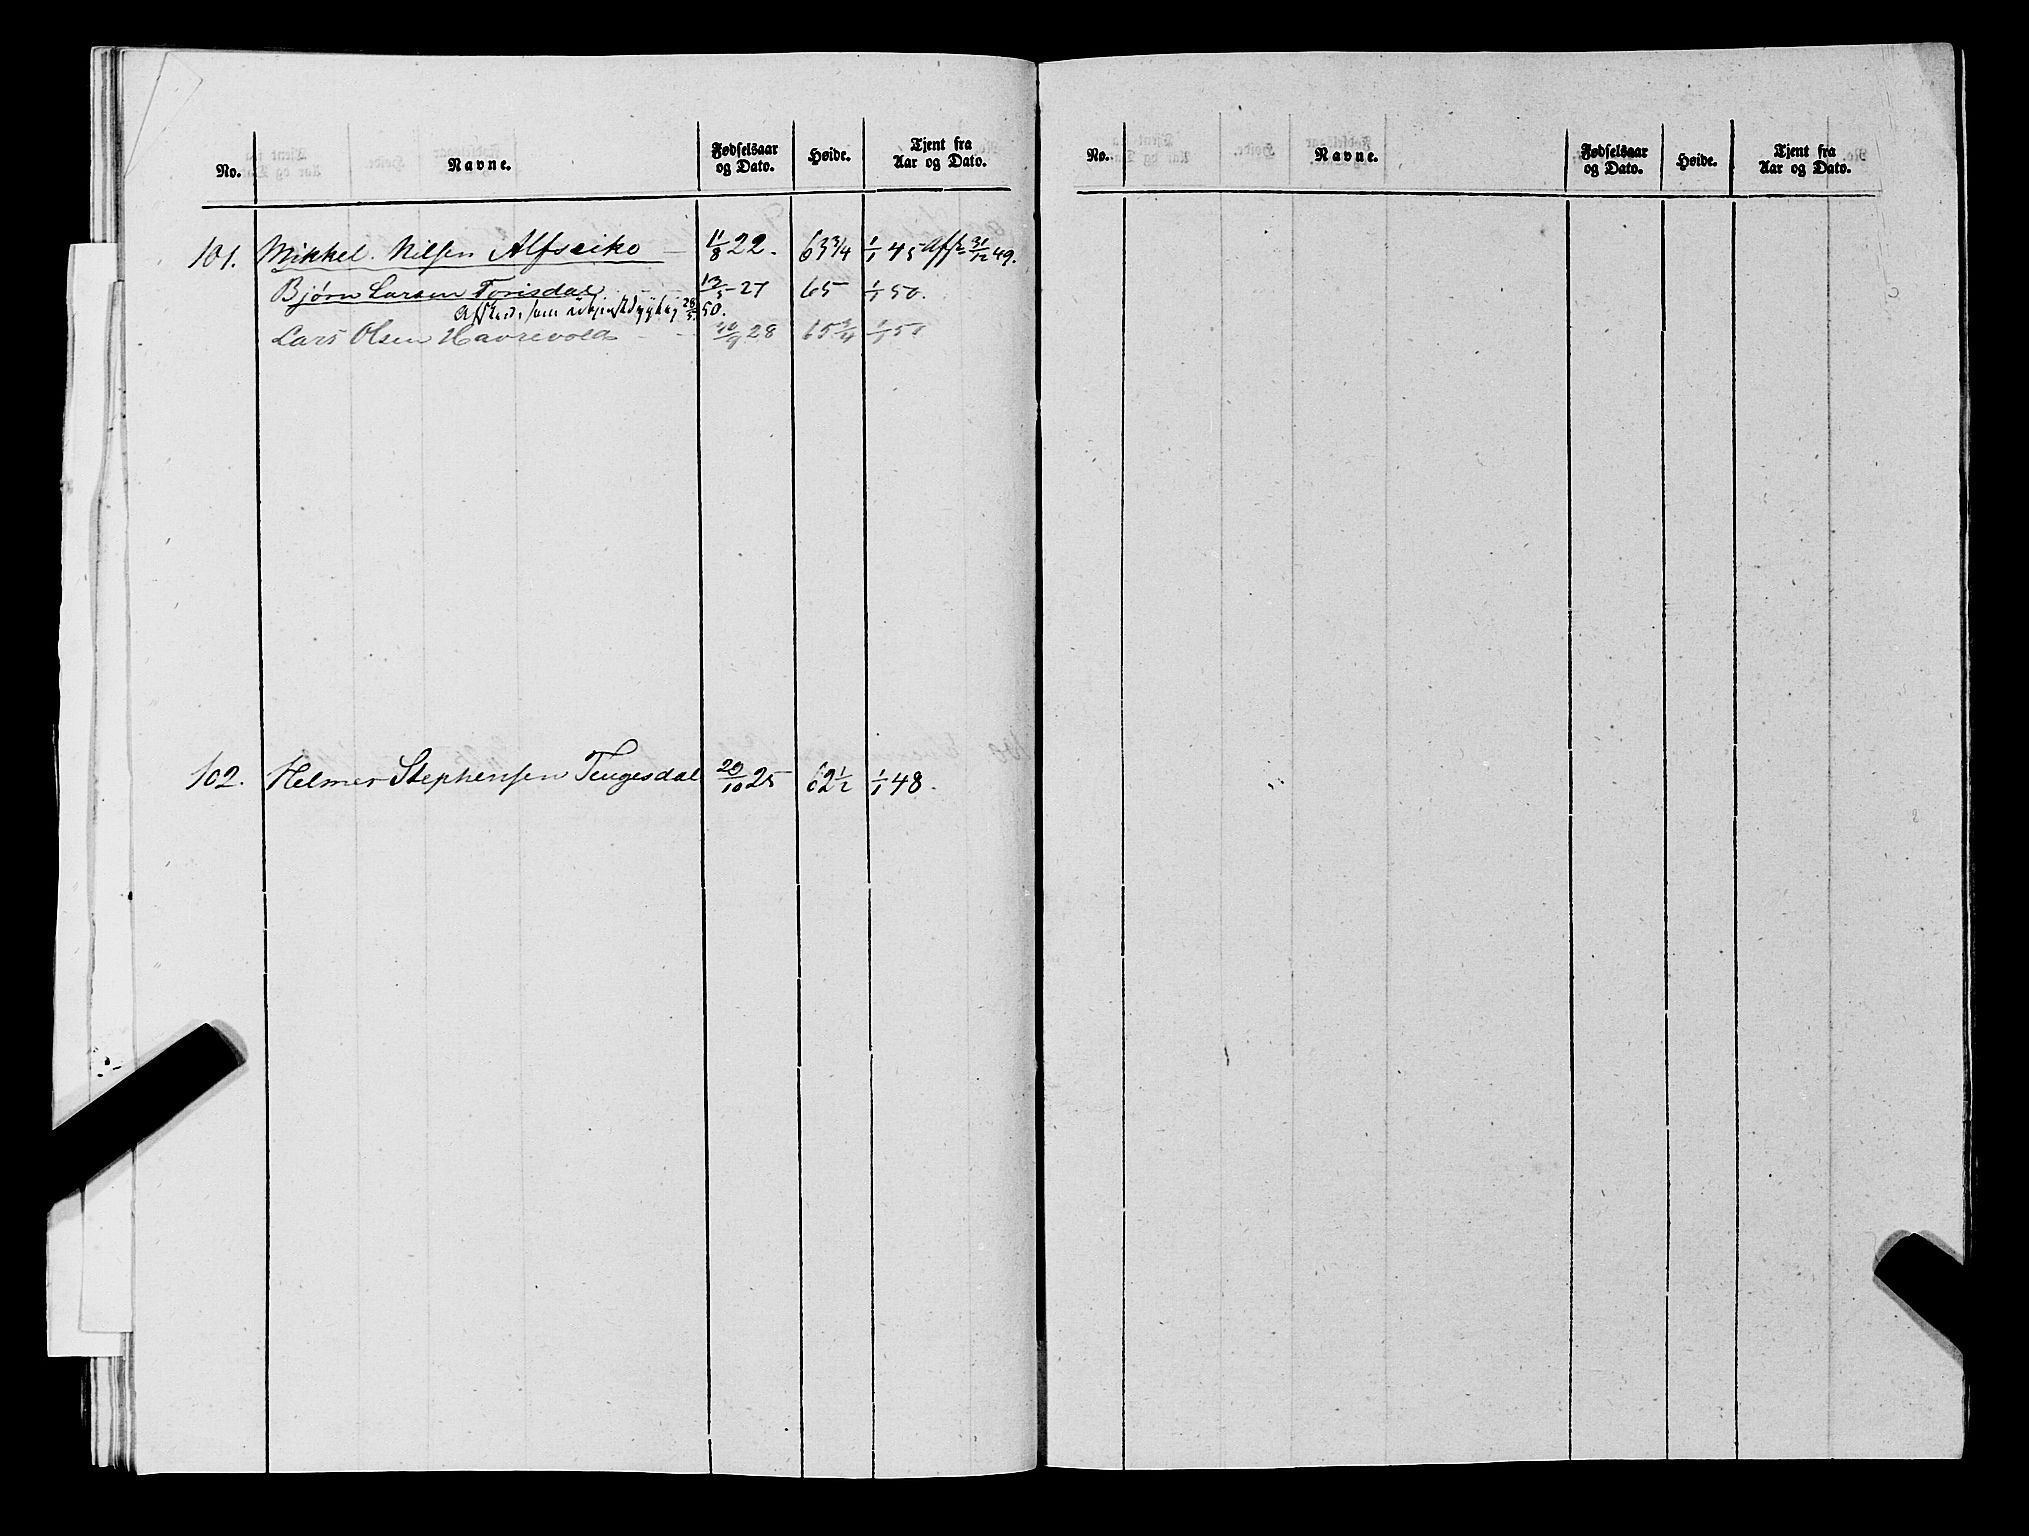 No. Navne. Fødselsaar og Dato. Høide. Tjent fra Aar og Dato.
101. Mikkel Nilsen Alfseike 11/8 22. 63 3/4 1/1 45 Afsk 31/12 49.
Bjørn Larsen Torisdal 13/5 27 65 1/1 50.
Afsked som 28/3 50.
Lars Olsen Havrevold 28 65 3/4 1/1 50
102. Helmer Stephensen Tengesdal 20/10 25 62 1/2 1/1 48.
No. Navne. Fødselsaar og Dato. Høide. Tjent fra Aar og Dato.